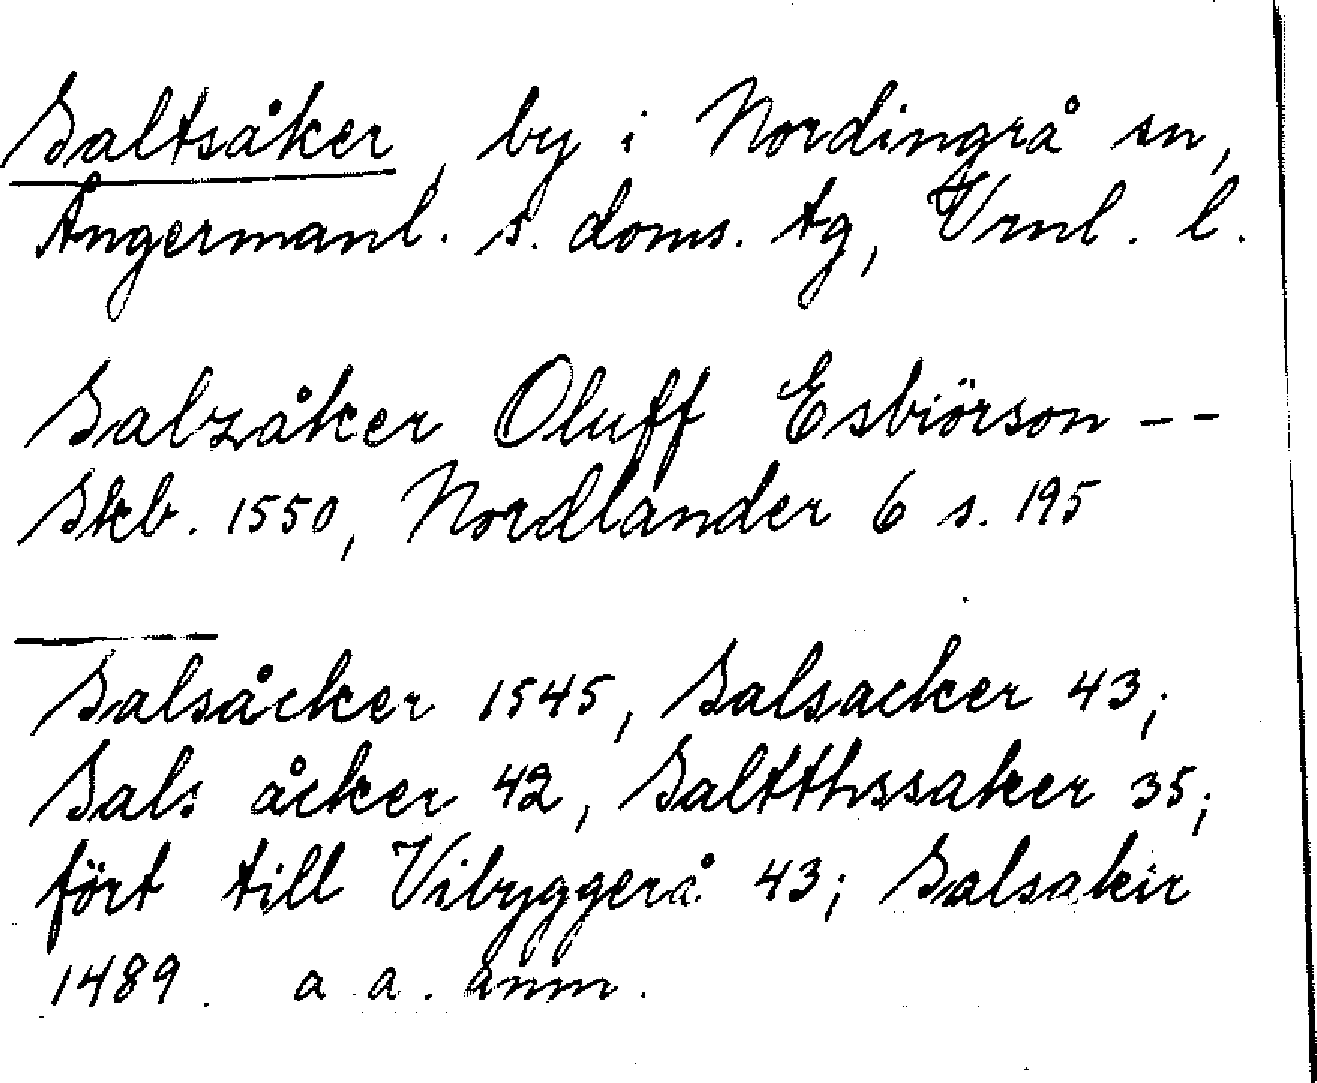 Saltsåker, by i Nordingrå sn,
Ångermanl. s. doms. tg, Vrnl. l.
Salzåker Oluff Esbiörson --
Skb. 1550, Nordlander 6 s. 195
Salsåcker 1545, Salsacker 43;
Sals åcker 42, Saltthssaker 35;
fört till Vibyggerå 43; Salsakir
1489. a a. anm.